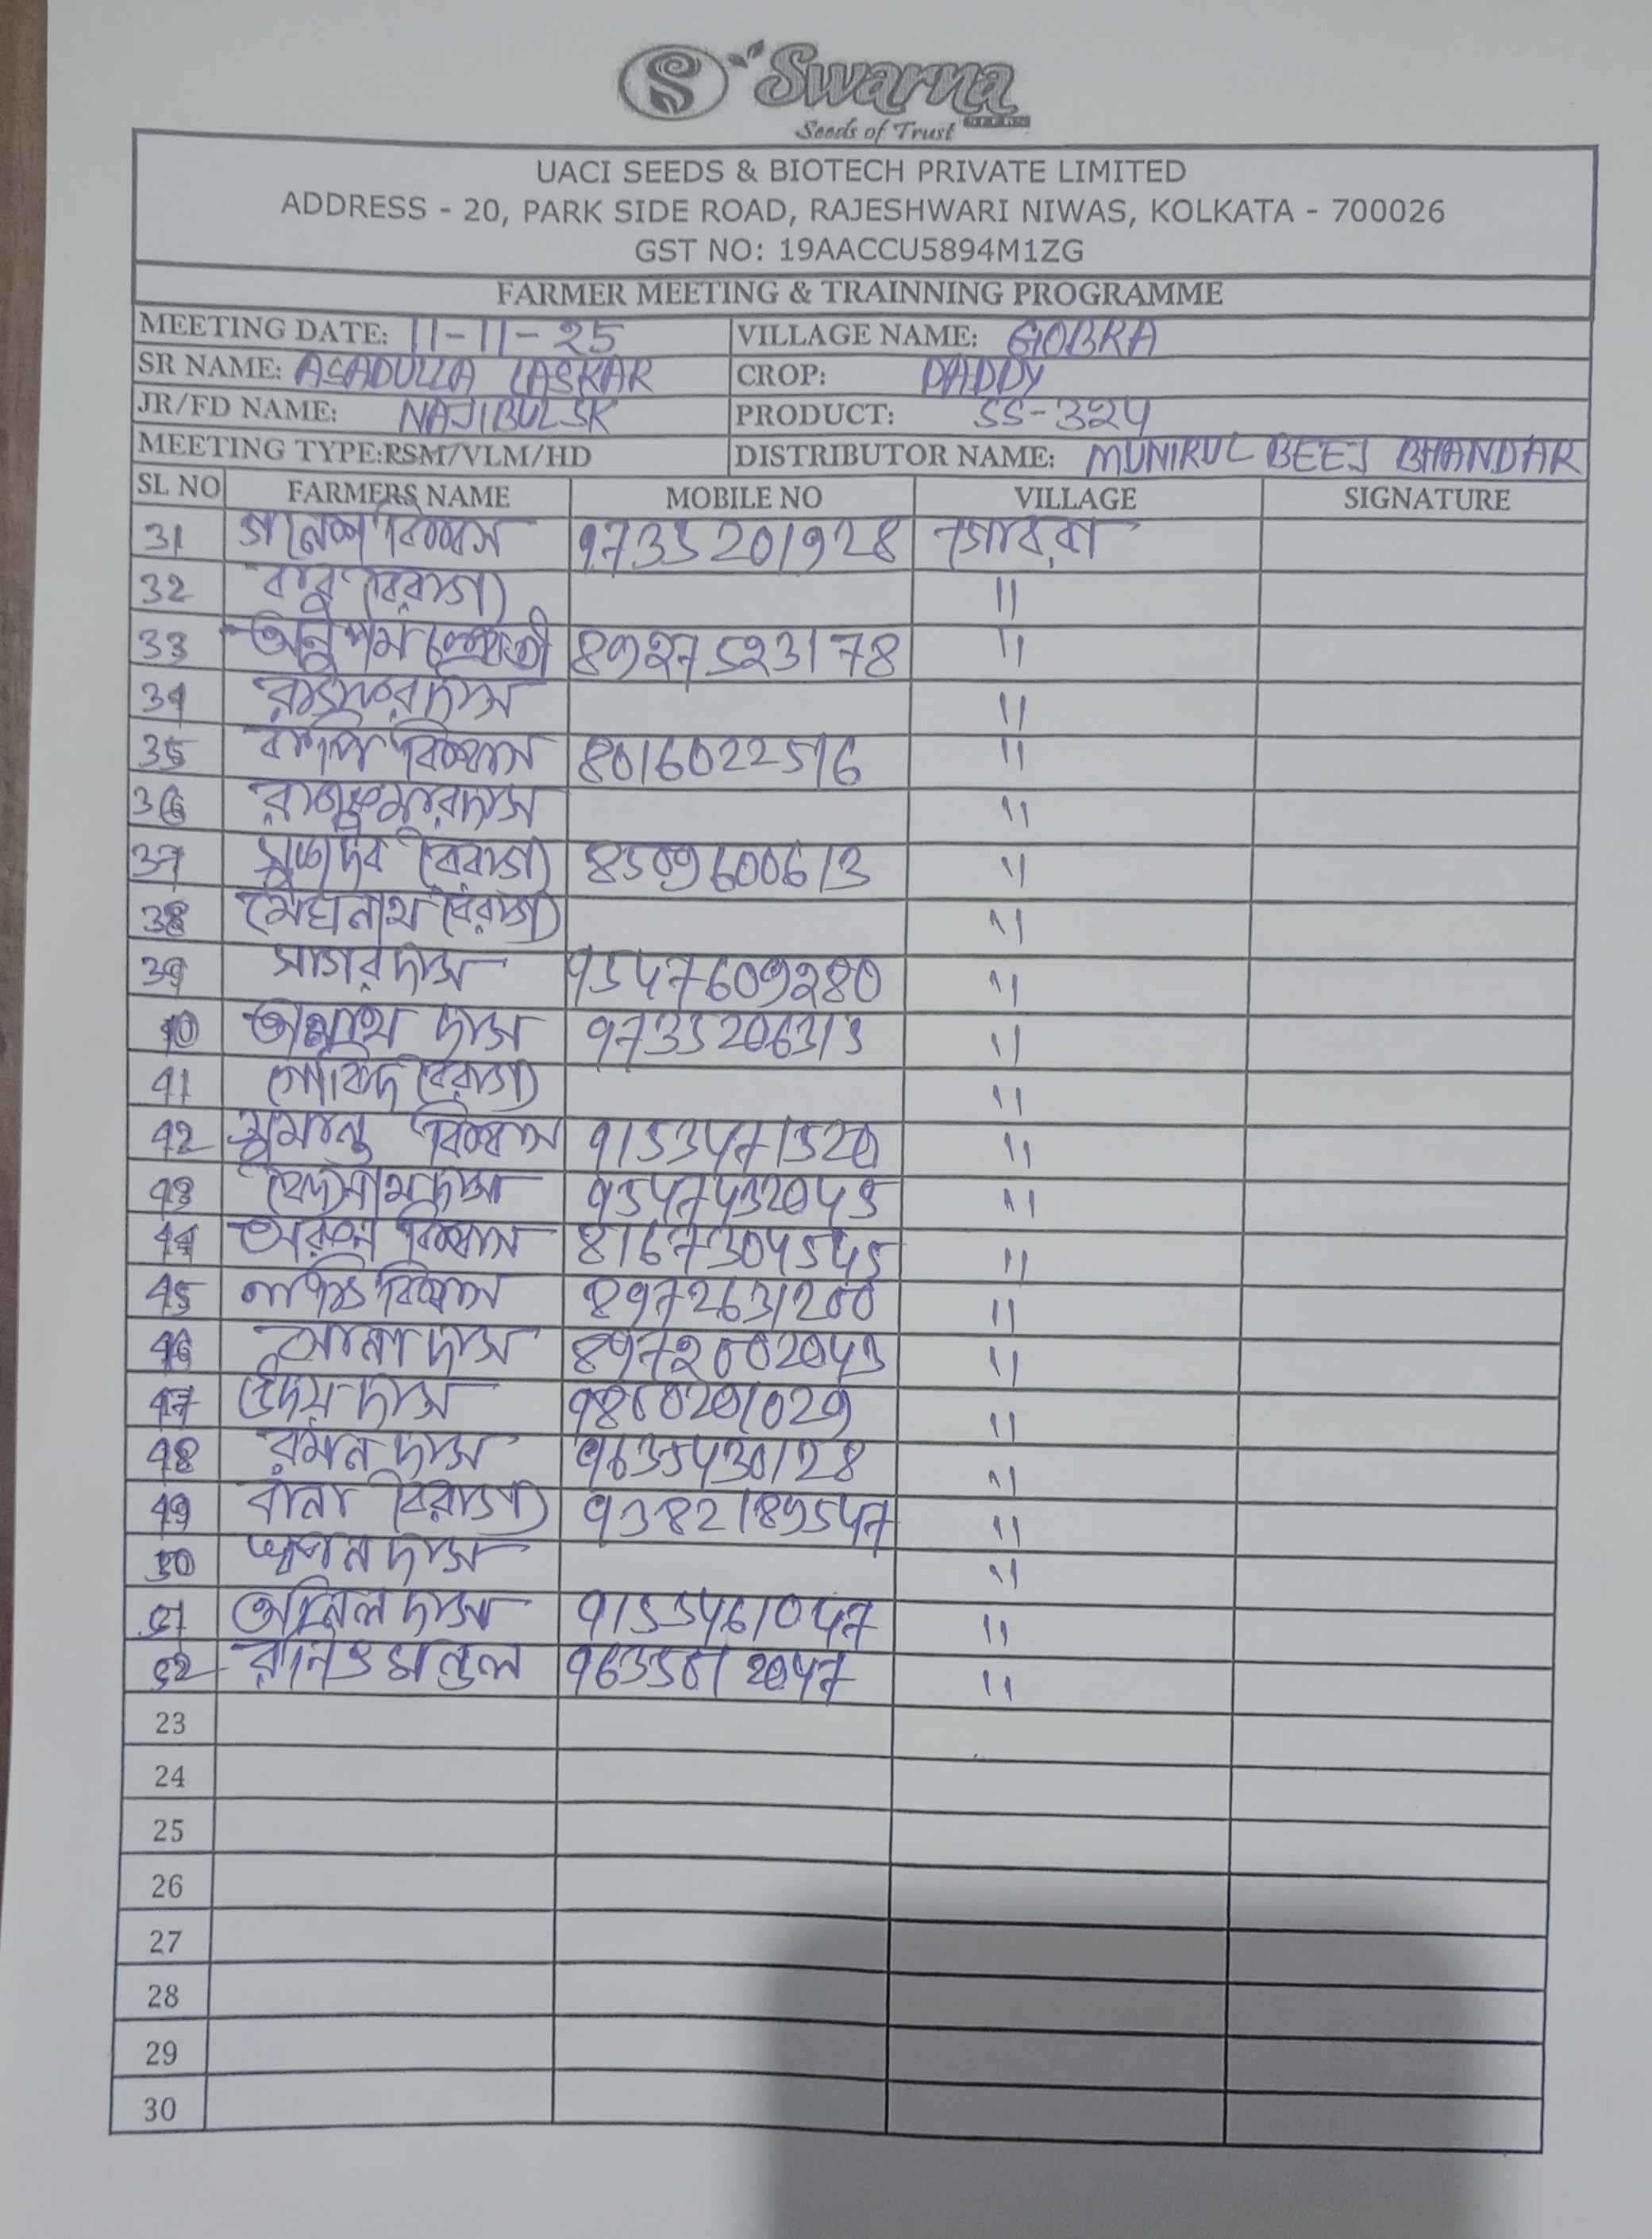 Swarna
Seeds of Trust
UACI SEEDS & BIOTECH PRIVATE LIMITED
ADDRESS - 20, PARK SIDE ROAD, RAJESHWARI NIWAS, KOLKATA - 700026
GST NO: 19AACCU5894M1ZG
FARMER MEETING & TRAINNING PROGRAMME
MEETING DATE: 11-11-25 VILLAGE NAME: GOBRA
SR NAME: ASADULLA LASKAR CROP: PADDY
JR/FD NAME: NAJIBUL SK PRODUCT: SS-324
MEETING TYPE:RSM/VLM/HD DISTRIBUTOR NAME: MUNIRUL BEEJ BHANDAR
SL NO FARMERS NAME MOBILE NO VILLAGE SIGNATURE
31 গনেশ বিশ্বাস 9735201928 গোবরা
32 বাবু বৈরাগ্য "
33 অনুপম 8927523178 "
34 দাস "
35 বিশ্বাস 8016022516 "
36 রাজকুমার দাস "
37 সুজদেব বৈরাগ্য 8509600613 "
38 মেঘনাথ বৈরাগ্য "
39 সাগর দাস 9547609280 "
40 দাস 9735206313 "
41 গোবিন্দ বৈরাগ্য "
42 সুমান্ত বিশ্বাস 9153471520 "
43 9547432043 "
44 অরুন বিশ্বাস 8167304545 "
45 বিশ্বাস 8972631200 "
46 সোনা দাস 8972002043 "
47 উদয় দাস "
48 রমন দাস 9635430128 "
49 বানা বৈরাগ্য 9382189547 "
50 স্বপন দাস "
51 অনিল দাস 9153461047 "
52 রনিত মন্ডল 9635012047 "
23
24
25
26
27
28
29
30